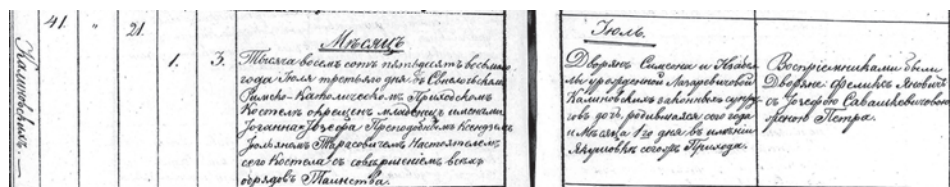 41. " 21.
Мѣсяцъ
Июль.
Калиновскихъ.
1. 3. Тысяча восемь сотъ пятьдесятъ восьмаго
года Іюля третьяго дня въ
Римско-Католическомъ Приходскомъ
Костелѣ окрещенъ младенецъ именами
Іоганна-Іозефа Преподобнымъ Ксендзомъ
Тарасовичемъ Настоятелемъ
сего Костела съ совершеніемъ всѣхъ
обрядовъ Таинства.
Дворянъ Симеона и
урожденной Лазаревичовой
Калиновскихъ законныхъ супру-
говъ дочь, родившаяся сего года
и Мѣсяца 1го дня въ имѣніи
сегожъ Прихода.
Воспріемниками были
Дворяне Феликсъ Яновичъ
съ Іозефою Савашкевичовою
женою Петра.